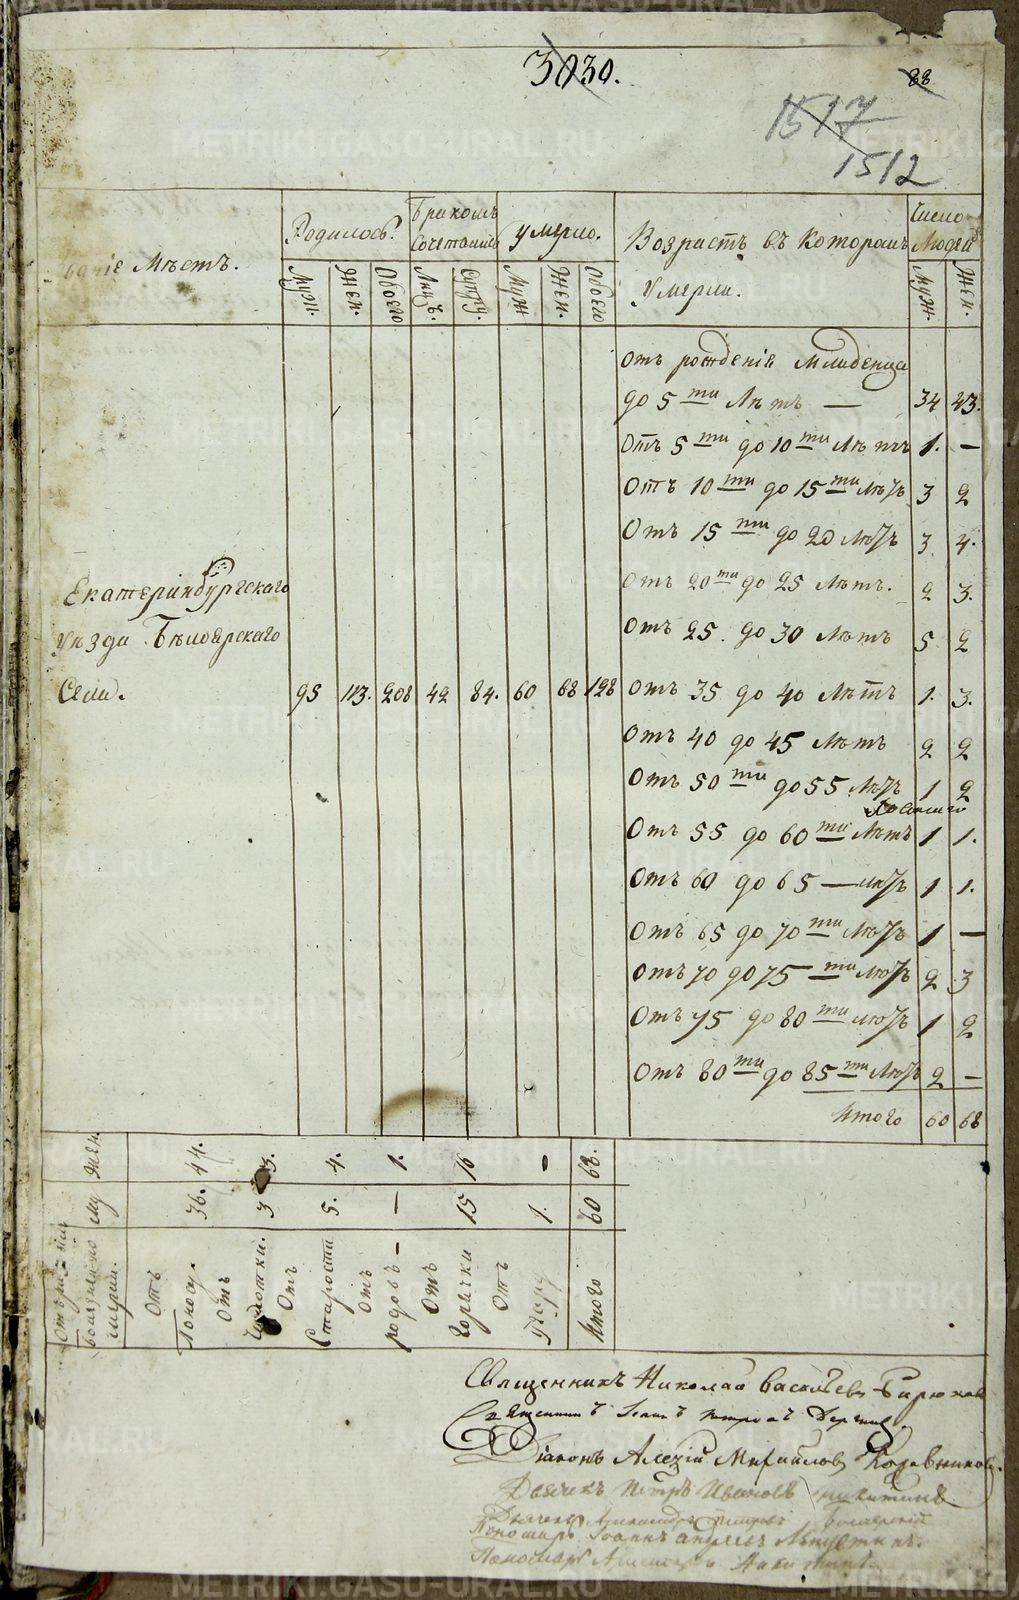 3030.
88
1517
1512
ваніе Мѣстъ.
Родилось.
Бракомъ
Сочетаніи
умерло.
Возрастъ въ Которомъ
Умерли.
Число
Людей
Муж.
Жен.
Обоего
Лицъ.
Супру.
Муж
Жен.
Обоего
Муж.
Жен.
Отъ рожденія Младенца
до 5 ти Лѣтъ — 34 43.
Отъ 5 ти до 10 ти Лѣтъ 1. —
Отъ 10 ти до 15 ти Лѣтъ 3 2
Отъ 15 ти до 20 Лѣтъ 3 4.
Отъ 20 ти до 25 Лѣтъ. 2 3.
Отъ 25. до 30 Лѣтъ 5 2
Екатеринбургскаго
уѣзда Бѣлоярскаго
Села. 95 113. 208 42 84. 60 68 128
Отъ 35 до 40 Лѣтъ 1. 3.
Отъ 40 до 45 Лѣтъ 2 2
Отъ 50 ти до 55 Лѣтъ 1 2
Отъ 55 до 60 ти Лѣтъ 1 1.
Отъ 60 до 65 — Лѣтъ 1 1.
Отъ 65 до 70 ти Лѣтъ 1 —
Отъ 70 до 75 — ти Лѣтъ 2 3
Отъ 75 до 80 ти Лѣтъ 1 2
Отъ 80 ти до 85 ти Лѣтъ 2 —
Итого 60 68
Жен. 44. 3. 4. 1. 16 1 68.
Му 36. 3 5. — 15 1. 60
болѣзни
Отъ Поносу.
Отъ Чахотки.
Отъ Старости
Отъ родовъ —
Отъ Горячки
Отъ
Итого
Священникъ Николай Васильевъ Бирюков
Священникъ Петровъ
Діаконъ Алексій Михайловъ Коровниковъ.
Дьячекъ Петръ Ивановъ Никитинъ
Дьячекъ
Пономарь Іоаннъ Андреевъ
Пономарь
METRIKI.GASO-URAL.RU